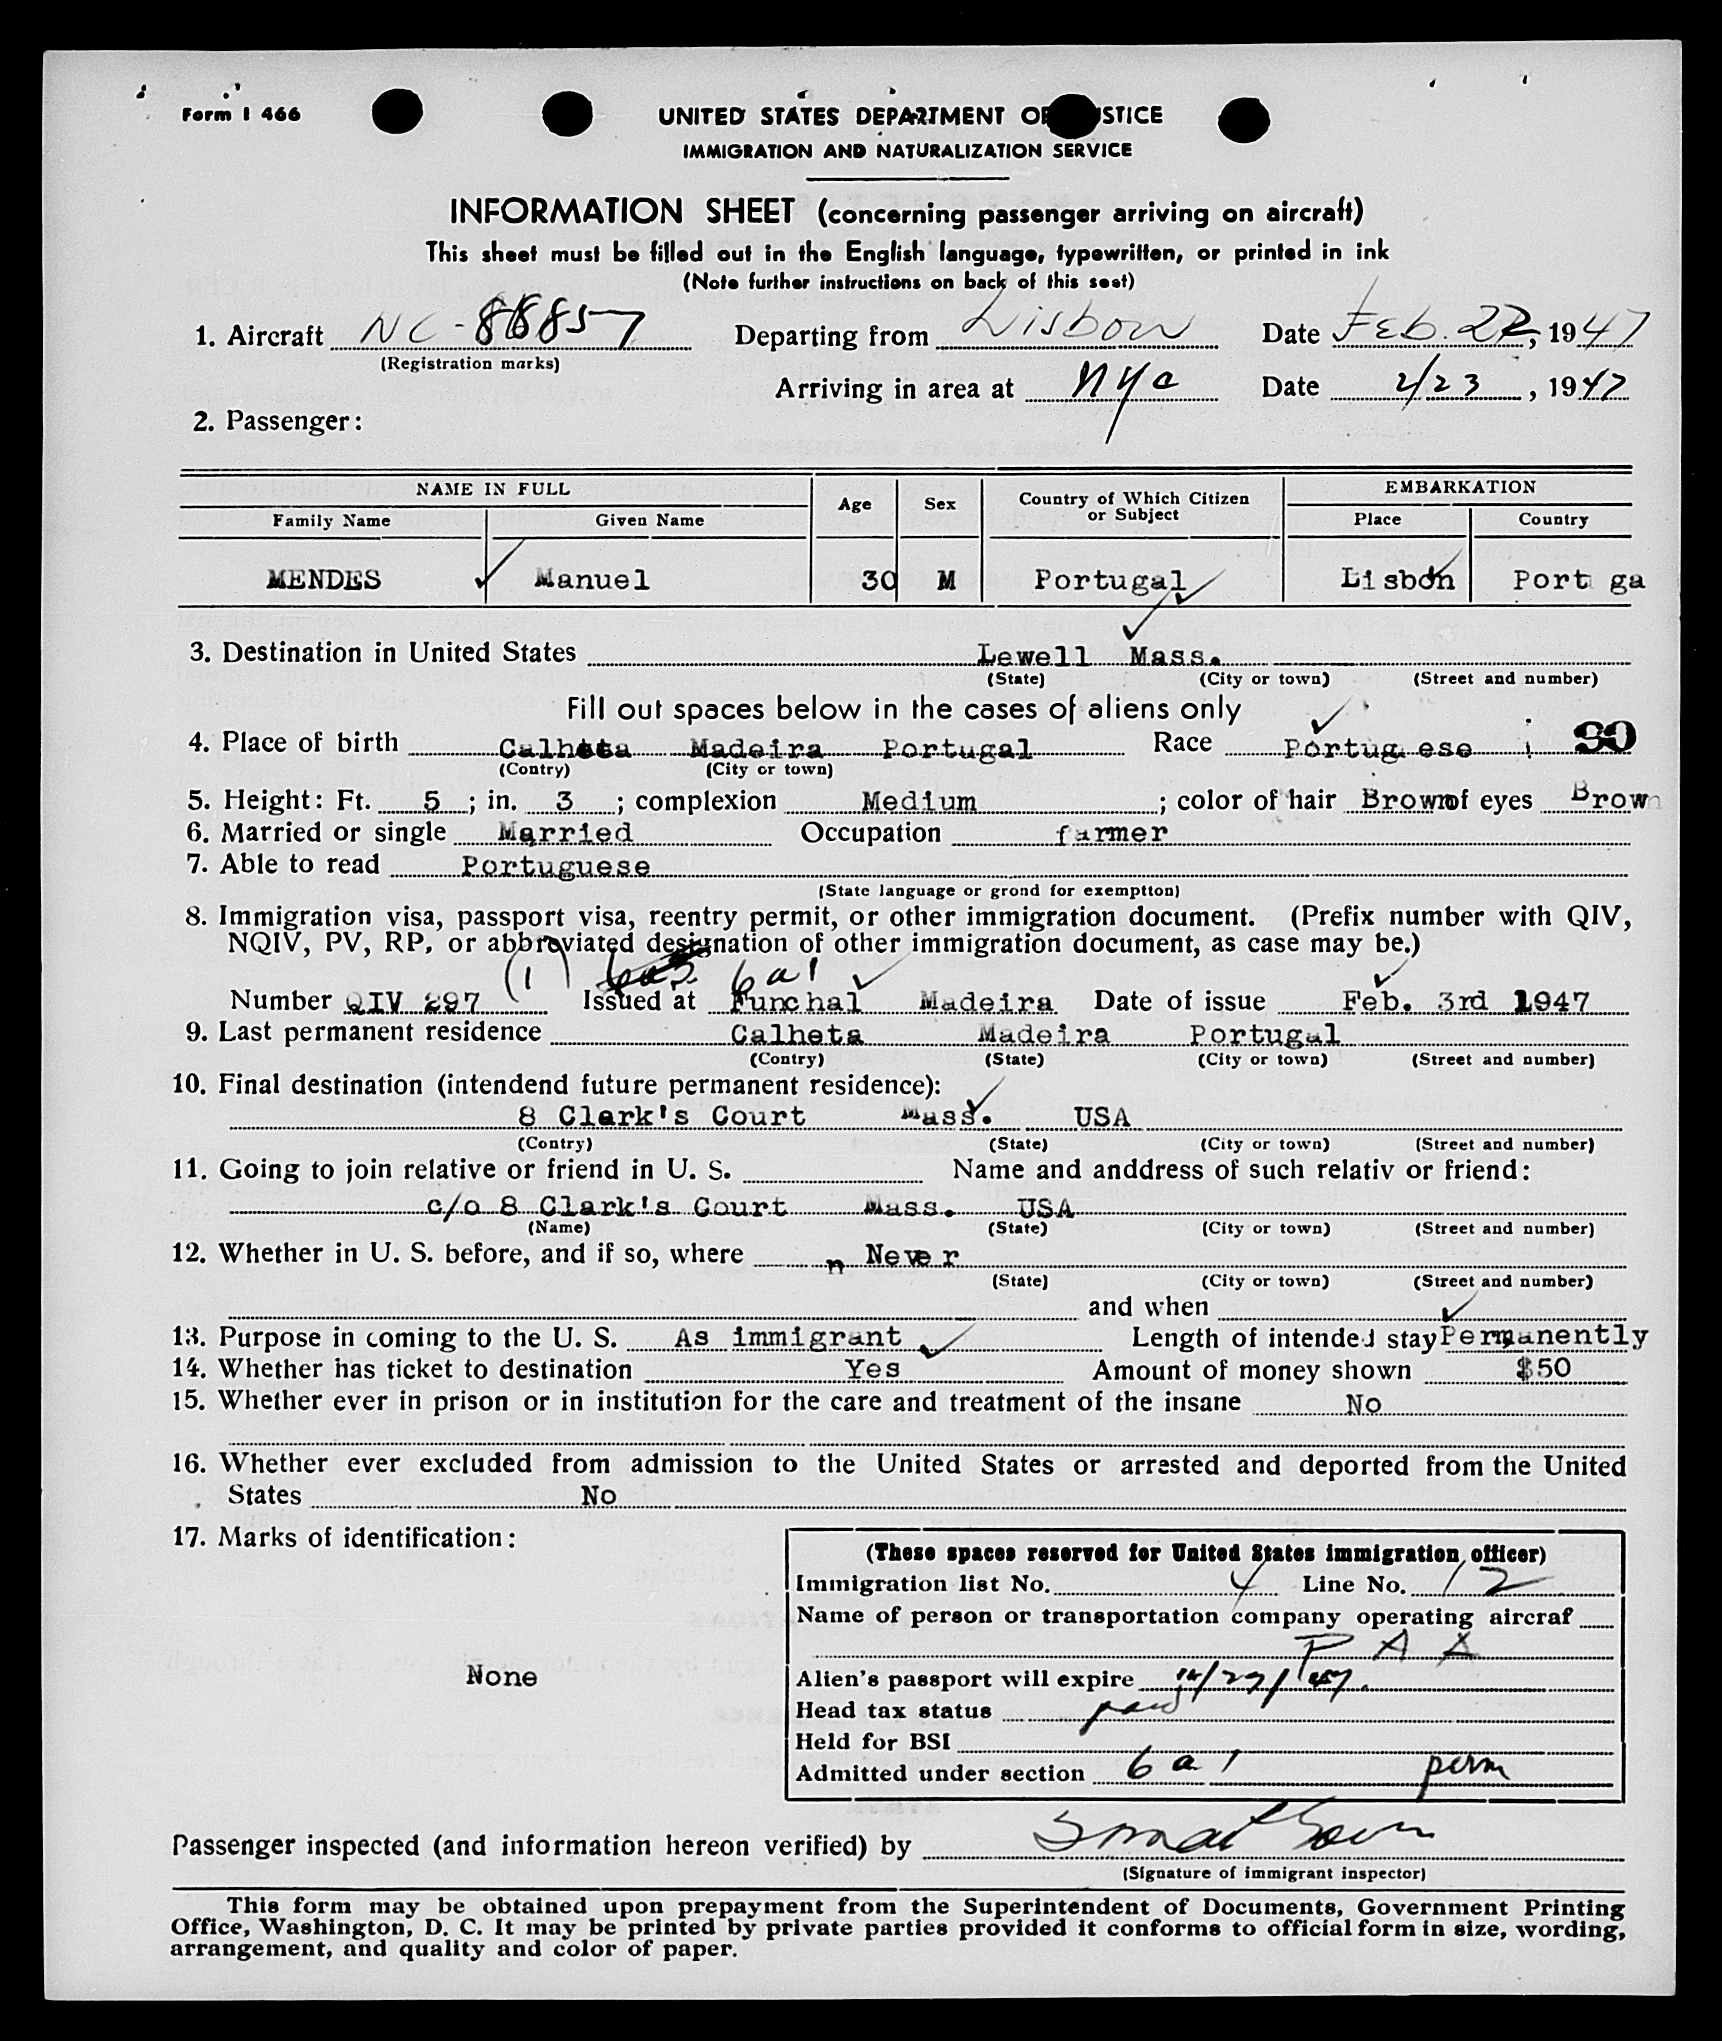 Form I 466
UNITED STATES DEPARTMENT OF JUSTICE
IMMIGRATION AND NATURALIZATION SERVICE
INFORMATION SHEET (concerning passenger arriving on aircraft)
This sheet must be filled out in the English language, typewritten, or printed in ink
(Note further instructions on back of this seet)
1. Aircraft NC-88857 Departing from Lisbon Date Feb. 22, 1947
(Registration marks)
Arriving in area at NYC Date 2/23, 1947
2. Passenger:
NAME IN FULL Age Sex Country of Which Citizen or Subject EMBARKATION
Family Name Given Name Place Country
MENDES Manuel 30 M Portugal Lisbon Port ga
3. Destination in United States Lewell Mass.
(State) (City or town) (Street and number)
Fill out spaces below in the cases of aliens only
4. Place of birth Calheta Madeira Portugal Race Portug ese 90
(Contry) (City or town)
5. Height: Ft. 5; in. 3; complexion Medium; color of hair Brown of eyes Brown
6. Married or single Married Occupation farmer
7. Able to read Portuguese
(State language or grond for exemptton)
8. Immigration visa, passport visa, reentry permit, or other immigration document. (Prefix number with QIV,
NQIV, PV, RP, or abbreviated designation of other immigration document, as case may be.)
(1) 6a1
Number QIV 297 Issued at Funchal Madeira Date of issue Feb. 3rd 1947
9. Last permanent residence Calheta Madeira Portugal
(Contry) (State) (City or town) (Street and number)
10. Final destination (intendend future permanent residence):
8 Clark's Court Mass. USA
(Contry) (State) (City or town) (Street and number)
11. Going to join relative or friend in U. S. Name and anddress of such relativ or friend:
c/o 8 Clark's Court Mass. USA
(Name) (State) (City or town) (Street and number)
12. Whether in U. S. before, and if so, where n Never
(State) (City or town) (Street and number)
and when
13. Purpose in coming to the U. S. As immigrant Length of intended stay Permanently
14. Whether has ticket to destination Yes Amount of money shown $50
15. Whether ever in prison or in institution for the care and treatment of the insane No
16. Whether ever excluded from admission to the United States or arrested and deported from the United
States No
17. Marks of identification:
None
(These spaces reserved for United States immigration officer)
Immigration list No. 4 Line No. 12
Name of person or transportation company operating aircraf
P A A
Alien's passport will expire /27/47.
Head tax status paid
Held for BSI
Admitted under section 6 a 1 perm
Passenger inspected (and information hereon verified) by
(Signature of immigrant inspector)
This form may be obtained upon prepayment from the Superintendent of Documents, Government Printing
Office, Washington, D. C. It may be printed by private parties provided it conforms to official form in size, wording,
arrangement, and quality and color of paper.